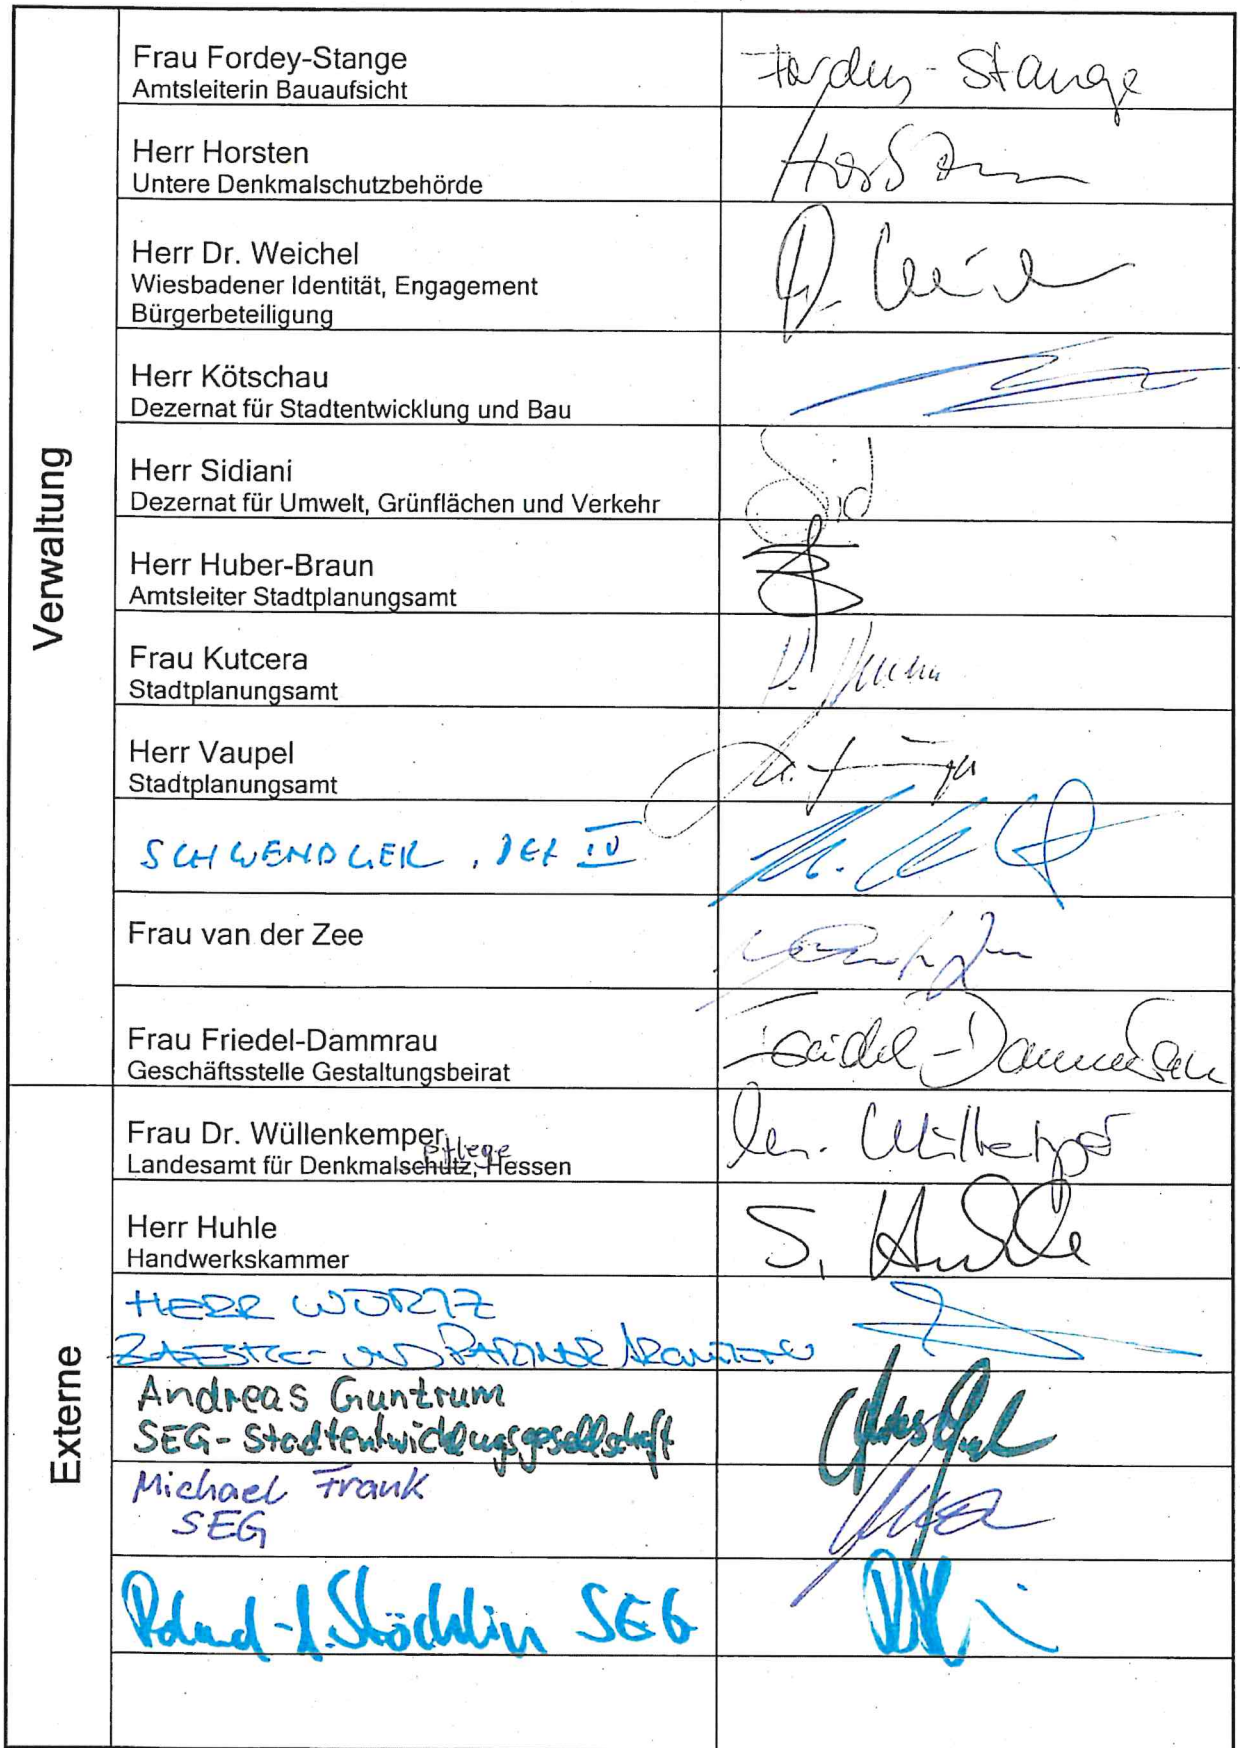 Verwaltung
Frau Fordey-Stange
Fordey-Stange
Amtsleiterin Bauaufsicht
Herr Horsten
Horsten
Untere Denkmalschutzbehörde
Herr Dr. Weichel
Wiesbadener Identität, Engagement
Bürgerbeteiligung
Herr Kötschau
Dezernat für Stadtentwicklung und Bau
Herr Sidiani
Sid
Dezernat für Umwelt, Grünflächen und Verkehr
Herr Huber-Braun
Amtsleiter Stadtplanungsamt
Frau Kutcera
Stadtplanungsamt
Herr Vaupel
Stadtplanungsamt
SCHWENDLER, DEZ IV
Frau van der Zee
Frau Friedel-Dammrau
Friedel-Dammrau
Geschäftsstelle Gestaltungsbeirat
Externe
Frau Dr. Wüllenkemper
pflege
Landesamt für Denkmalschutz, Hessen
Herr Huhle
S. Huhle
Handwerkskammer
HERR WÜRTZ
UND PARTNER
Andreas Guntrum
SEG-Stadtentwicklungsgesellschaft
Michael Frank
SEG
Stöcklin SEG